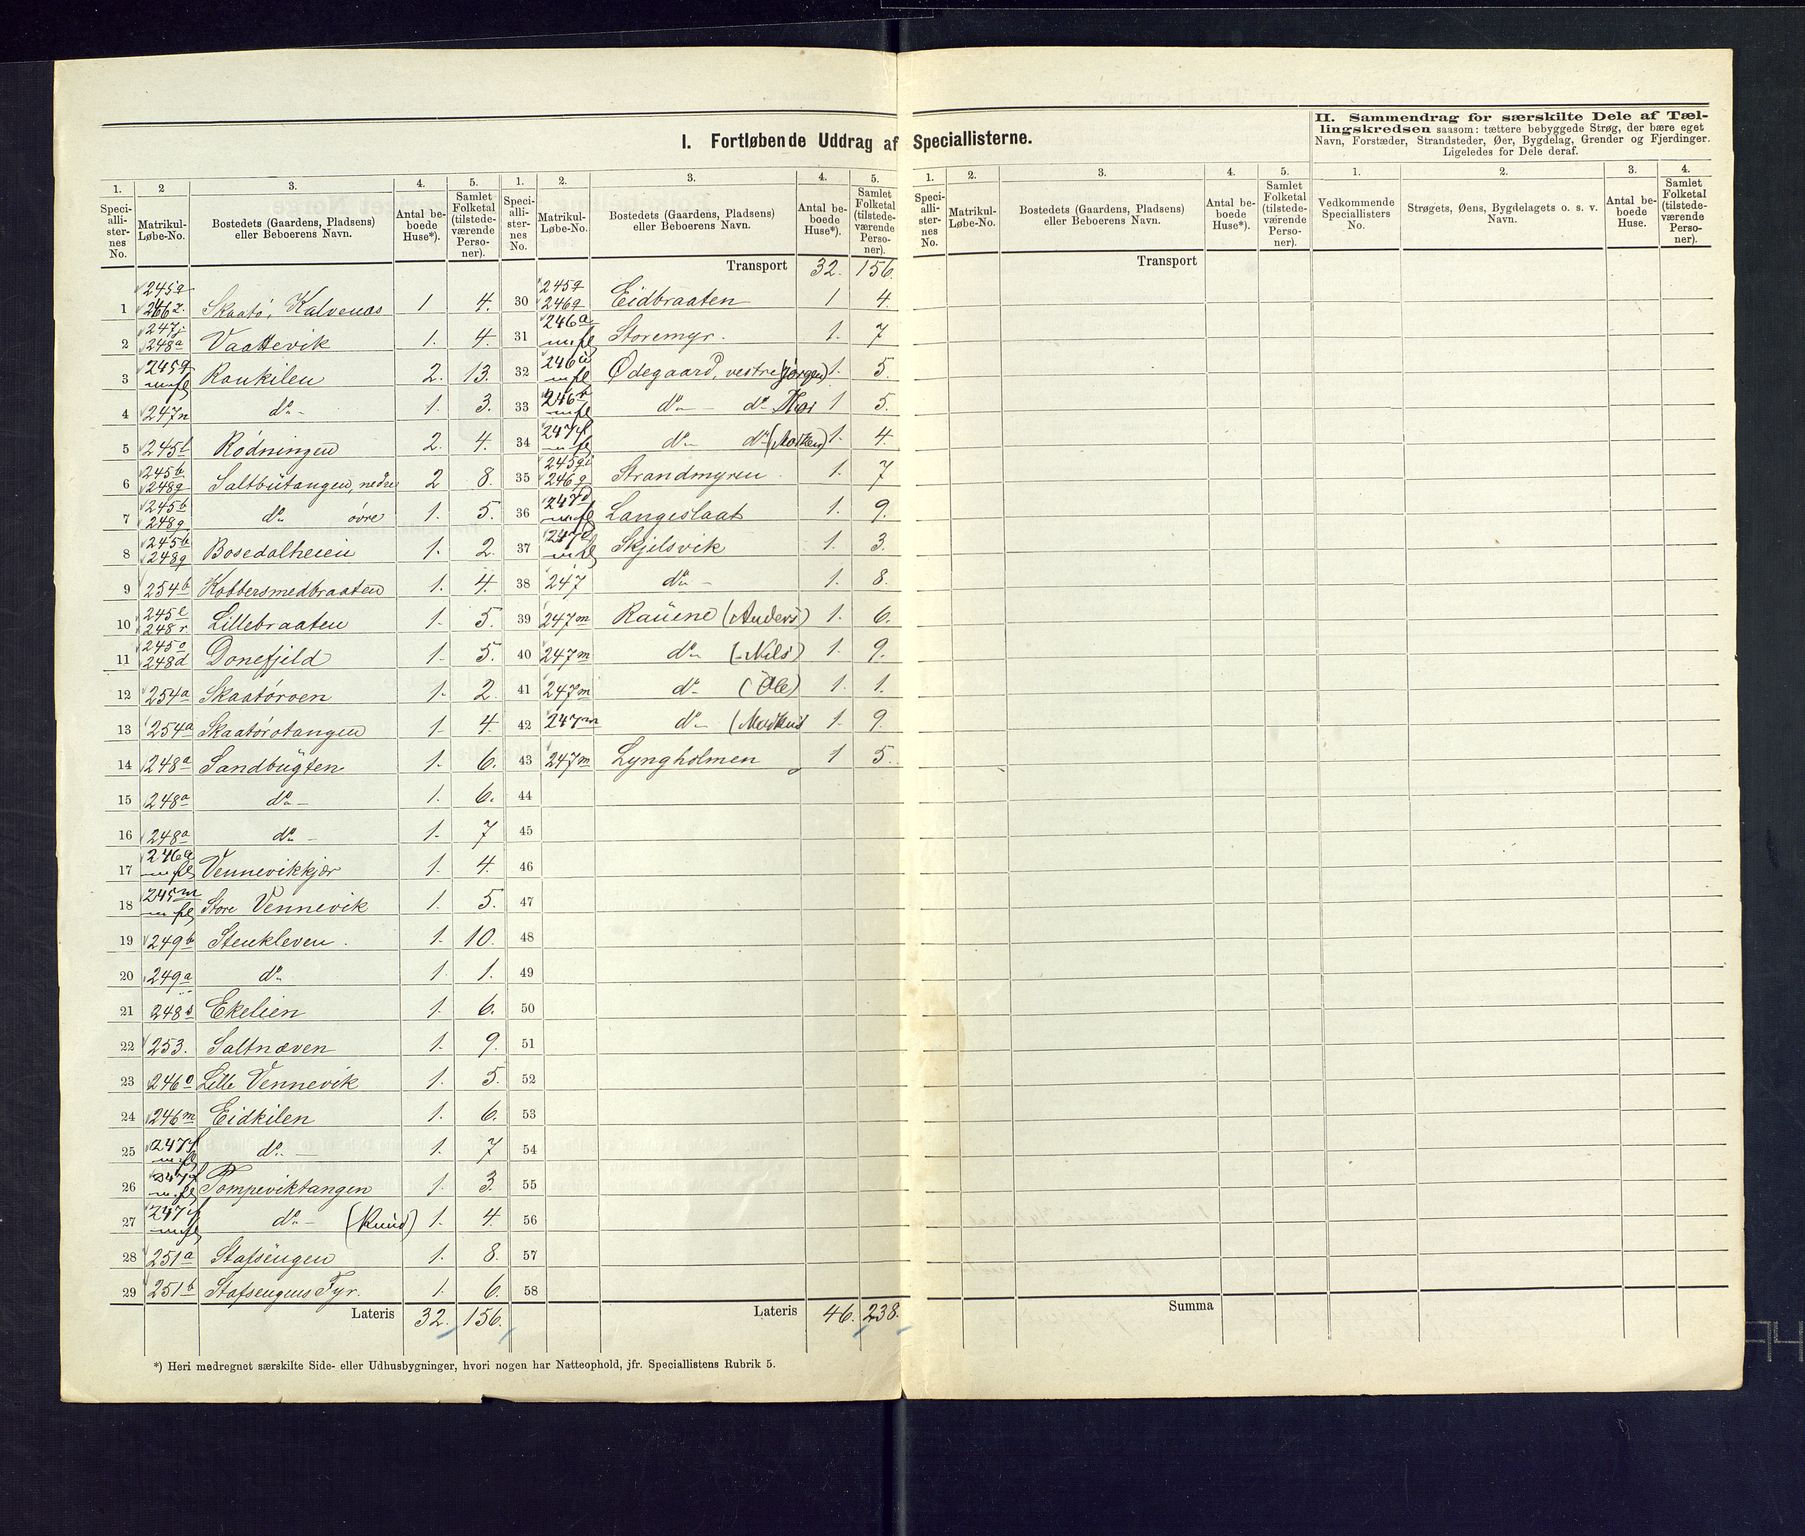 I. Fortløbende Uddrag af Speciallisterne.
II. Sammendrag for særskilte Dele af Tæl-
lingskredsen saasom: tættere bebyggede Strøg, der bære eget
Navn, Forstæder, Strandsteder, Øer, Bygdelag, Grender og Fjerdinger.
Ligeledes for Dele deraf.
1. 2 3. 4. 5. 1. 2. 3. 4. 5. 1. 2. 3. 4. 5. 1. 2. 3. 4.
Speciallisternes No. Matrikul-Løbe-No. Bostedets (Gaardens, Pladsens) eller Beboerens Navn. Antal beboede Huse*). Samlet Folketal (tilstedeværende Personer).
Speciallisternes No. Matrikul-Løbe-No. Bostedets (Gaardens, Pladsens) eller Beboerens Navn. Antal beboede Huse*). Samlet Folketal (tilstedeværende Personer).
Speciallisternes No. Matrikul-Løbe-No. Bostedets (Gaardens, Pladsens) eller Beboerens Navn. Antal beboede Huse*). Samlet Folketal (tilstedeværende Personer).
Vedkommende Speciallisters No. Strøgets, Øens, Bygdelagets o. s. v. Navn. Antal beboede Huse. Samlet Folketal (tilstedeværende Personer).
1 Skaatø, Kalvenæs 1 4.
2 247j 248a Vaattevik 1. 4.
3 245g m.fl Raukilen 2. 13.
4 247n do 1. 3.
5 245f Rødningen 2. 4.
6 245b 248g Saltbutangen, nedre 2 8.
7 245b 248g do øvre 1. 5.
8 245b 248g Bosedalheien 1. 2.
9 254b Kobbersmedbraaten 1. 4.
10 245e 248r. Lillebraaten 1. 5.
11 245o 248d Donefjeld 1. 5.
12 254a Skaatøroen 1. 2.
13 254a Skaatørotangen 1 4.
14 248a Sandbugten 1. 6.
15 248a do 1. 6.
16 248a do 1. 7
17 246a m.fl Vennevikkjær 1. 4.
18 245m m.fl Store Vennevik 1. 5.
19 249b Stenkleven. 1. 10.
20 249a do 1. 1.
21 248s Ekelien 1. 6.
22 253. Saltnæven 1. 9.
23 246o Lille Vennevik 1. 5.
24 246m Eidkilen 1. 6.
25 247f m.fl do 1. 7
26 247f m.fl Tompeviktangen 1. 3.
27 247f m.fl do (Knud) 1. 4.
28 251a Stafsengen 1. 8.
29 251b Stafsengens Fyr. 1. 6.
Lateris 32. 156.
Transport 32. 156.
30 245g 246g Eidbraaten 1 4.
31 246a m.fl Storemyr. 1. 7
32 m.fl Ødegaard, vestre (Jørgen) 1. 5.
33 m.fl do do 1 5.
34 247f m.fl do do 1. 4
35 246g Strandmyren 1. 7
36 m.fl Langeslaat 1. 9.
37 m.fl Skjelsvik 1. 3.
38 247 do 1. 8.
39 247m Rauene (Anders) 1. 6.
40 247m do (Nils) 1. 9.
41 247m do (Ole) 1. 1.
42 247m do 1. 9.
43 247m Lyngholmen 1 5.
44
45
46
47
48
49
50
51
52
53
54
55
56
57
58
Lateris 46. 238.
Transport
Summa
*) Heri medregnet særskilte Side- eller Udhusbygninger, hvori nogen har Natteophold, jfr. Speciallistens Rubrik 5.